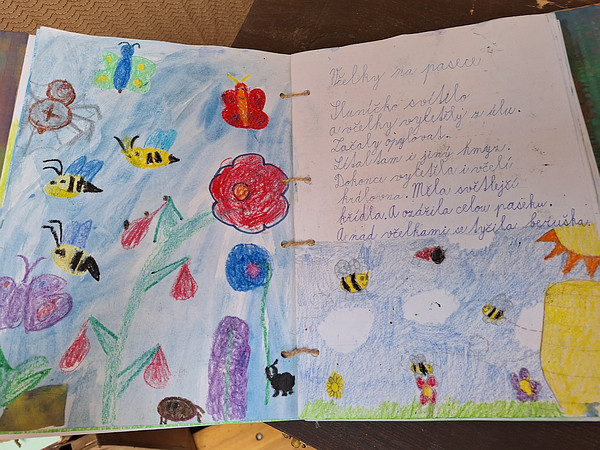 Včelky na pasece
Sluníčko svítilo
a včelky vyletěly z úlu.
Začaly opylovat.
Létal tam i jiný hmyz.
Dohonce vyletěla i včelí
královna. Měla světlejší
křídla. A ozdřila celou paseku.
A nad včelkami se tyčila beruška.